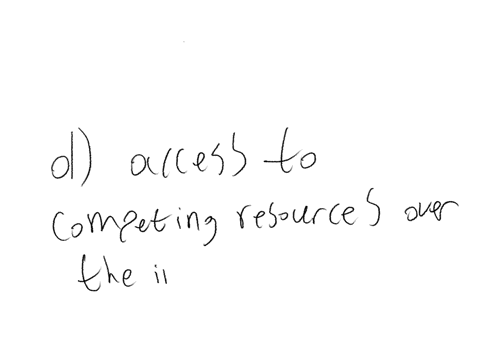 d) access to
competing resources over
the